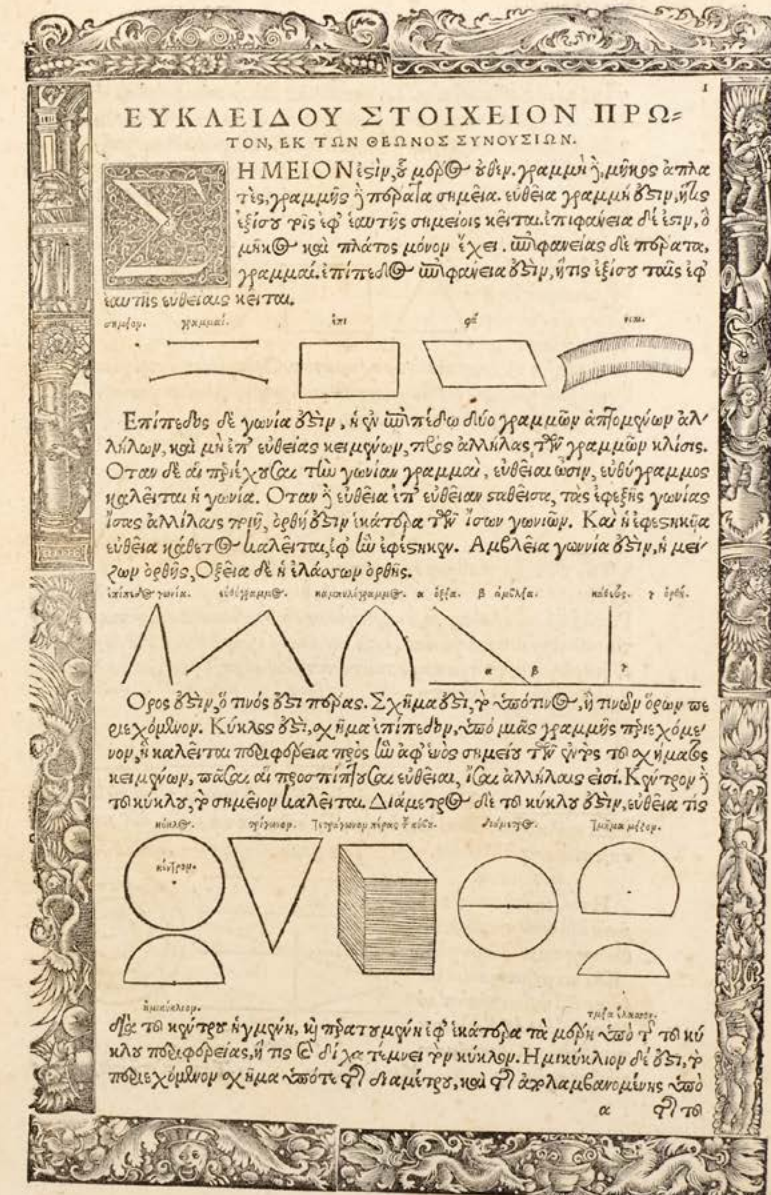 1
ΕΥΚΛΕΙΔΟΥ ΣΤΟΙΧΕΙΟΝ ΠΡΩ=
ΤΟΝ, ΕΚ ΤΩΝ ΘΕΩΝΟΣ ΣΥΝΟΥΣΙΩΝ.
ΣΗΜΕΙΟΝ ἐστιν, οὗ μέρος οὐθεν. γραμμὴ δὲ, μῆκος ἀπλα
τὲς, γραμμῆς δὲ πέρατα σημεῖα. εὐθεῖα γραμμή ἐστιν, ἥτις
ἐξίσου τοῖς ἐφ' ἑαυτῆς σημείοις κεῖται. ἐπιφάνεια δέ ἐστιν, ὃ
μῆκος καὶ πλάτος μόνον ἔχει. ἐπιφανείας δὲ πέρατα,
γραμμαί. ἐπίπεδος ἐπιφάνεια ἐστιν, ἥτις ἐξίσου ταῖς ἐφ'
ἑαυτῆς εὐθείαις κεῖται.
σημεῖον. γραμμαί. ἐπι φά νεια.
Επίπεδος δὲ γωνία ἐστὶν, ἡ ἐν ἐπιπέδω δύο γραμμῶν ἁπτομένων ἀλ-
λήλων, καὶ μὴ ἐπ' εὐθείας κειμένων, πρὸς ἀλλήλας τῶν γραμμῶν κλίσις.
Οταν δὲ αἱ περιέχουσαι τὴν γωνίαν γραμμαὶ, εὐθεῖαι ὦσιν, εὐθύγραμμος
καλεῖται ἡ γωνία. Οταν δὲ εὐθεῖα ἐπ' εὐθεῖαν σταθεῖσα, τὰς ἐφεξῆς γωνίας
ἴσας ἀλλήλαις ποιῇ, ὀρθή ἐστιν ἑκάτερα τῶν ἴσων γωνιῶν. Καὶ ἡ ἐφεστηκυῖα
εὐθεῖα κάθετος καλεῖται, ἐφ' ἣν ἐφέστηκεν. Αμβλεῖα γωνία ἐστὶν, ἡ μεί-
ζων ὀρθῆς, Οξεῖα δὲ ἡ ἐλάσσων ὀρθῆς.
ἐπίπεδος γωνία. εὐθύγραμμος. καμπυλόγραμμος. α ὀξεῖα. β ἀμβλεῖα. κάθετος. γ ὀρθή.
α β γ
Ορος ἐστὶν, ὅ τινός ἐστι πέρας. Σχῆμα ἐστι, τὸ ὑπό τινος, ἤ τινων ὅρων πε
ριεχόμενον. Κύκλος ἐστι, σχῆμα ἐπίπεδον, ὑπὸ μιᾶς γραμμῆς περιεχόμε-
νον, ἣ καλεῖται περιφέρεια πρὸς ἣν ἀφ' ἑνὸς σημείου τῶν ἐντὸς τοῦ σχήματος
κειμένων, πᾶσαι αἱ προσπίπτουσαι εὐθεῖαι, ἴσαι ἀλλήλαις εἰσί. Κέντρον δὲ
τοῦ κύκλου, τὸ σημεῖον καλεῖται. Διάμετρος δὲ τοῦ κύκλου ἐστὶν, εὐθεῖα τὶς
κύκλος. τρίγωνον. τετράγωνον πέρας τοῦ κύβου. διάμετρος. τμῆμα μεῖζον.
κέντρον.
ἡμικύκλιον. τμῆμα ἔλασσον.
διὰ τοῦ κέντρου ἠγμένη, καὶ περατουμένη ἐφ' ἑκάτερα τὰ μέρη ὑπὸ τῆς τοῦ κύ
κλου περιφερείας, ἥ τις καὶ δίχα τέμνει τὸν κύκλον. Ημικύκλιον δέ ἐστι, τὸ
περιεχόμενον σχῆμα ὑπό τε τῆς διαμέτρου, καὶ τῆς ἀπολαμβανομένης ὑπὸ
α τῆς τοῦ